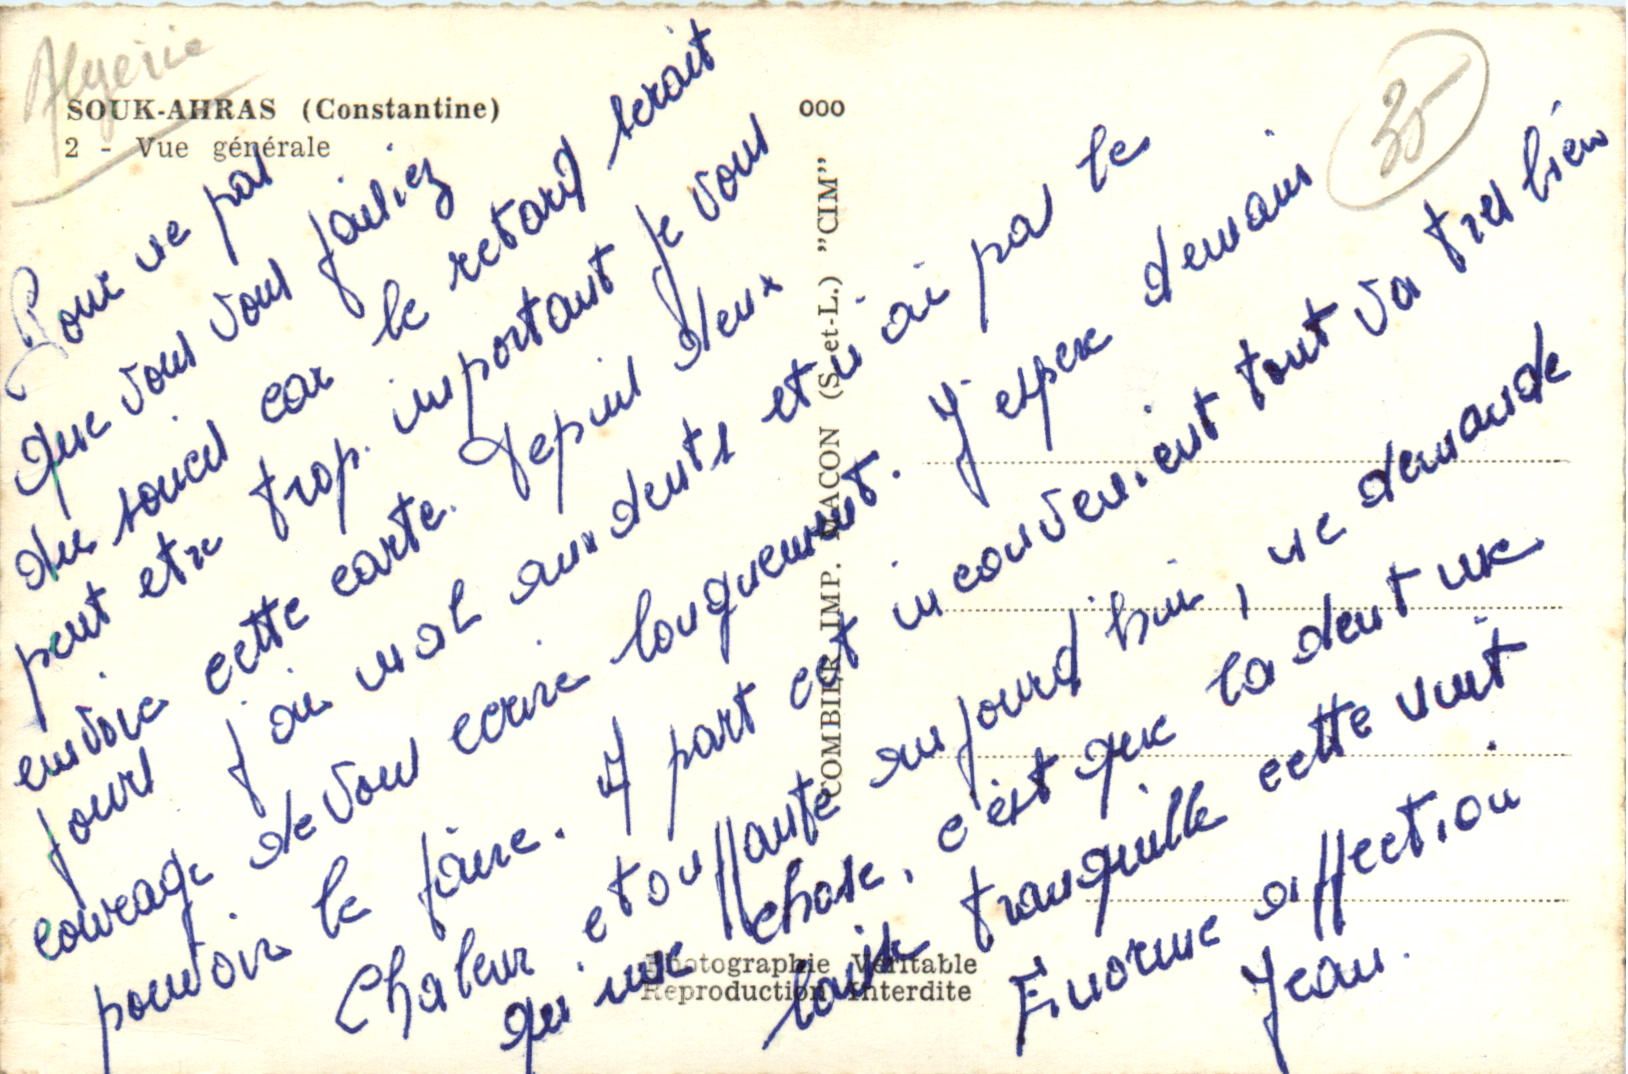 Algérie
SOUK-AHRAS (Constantine)
2 - Vue générale
35
Pour ne pas
que vous vous fassiez
du soucis car le retard serait
peut etre trop important je vous
envoie cette carte. Depuis deux
jours j'ai mal aux dents et n'ai pas le
courage de vous ecrire longuement. J'espere demain
pouvoir le faire. A part cet inconvenient tout va tres bien
Chaleur etouffante aujourd'hui, ne demande
qu'une chose, c'est que la dent me
laisse tranquille cette nuit.
Enorme affection
Jean.
000
COMBIER IMP. MACON (S.-et-L.) "CIM"
Photographie Véritable
Reproduction Interdite